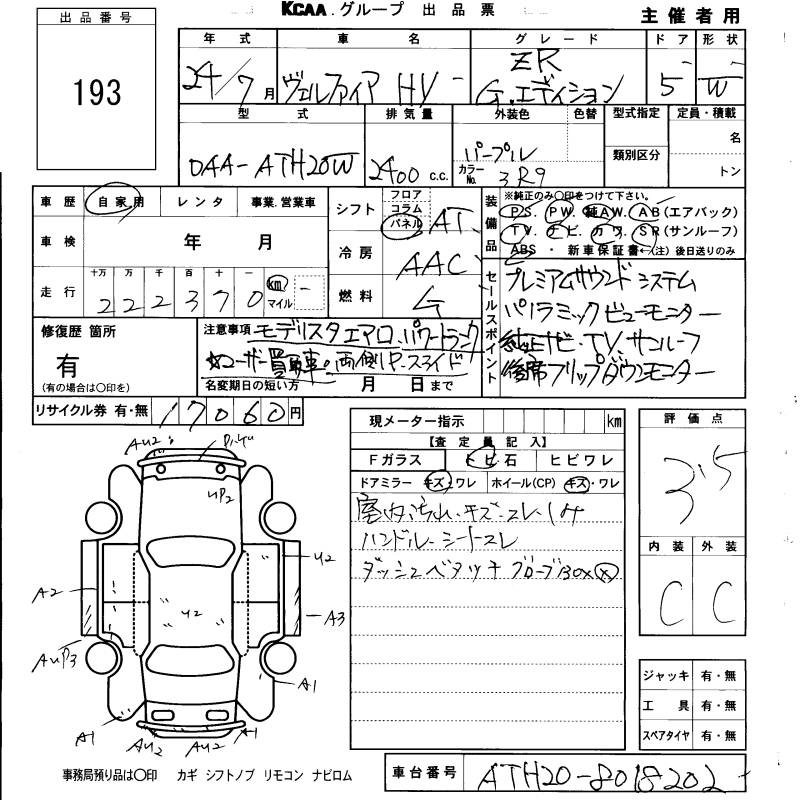 KCAA.グループ 出品票
主催者用
出品番号
193
年式 車名 グレード ドア 形状
24/7月 ヴェルファイア HV ZR G.エディション 5 W
型式 排気量 外装色 色替 型式指定 定員・積載
DAA-ATH20W 2400 c.c. パープル カラーNo. 3R9 類別区分 名 トン
車歴 自家用 レンタ 事業.営業車
シフト フロア コラム パネル AT
装備品 ※純正のみ○印をつけて下さい。
PS. PW. 純AW. AB(エアバック)
TV. ナビ. カワ. SR(サンルーフ)
ABS・新車保証書←(注)後日送りのみ
車検 年 月
冷房 AAC
走行 十万 万 千 百 十 一
222370 km マイル
燃料 G
セールスポイント
プレミアムサウンドシステム
パノラミックビューモニター
純正ナビ・TV サンルーフ
後席フリップダウンモニター
修復歴 箇所
有
(有の場合は○印を)
注意事項 モデリスタエアロ.パワートランク
ユーザー買取車。両側P.スライド
名変期日の短い方 月 日まで
リサイクル券 有・無 17060円
現メーター指示 km
【査定員記入】
Fガラス トビ石 ヒビワレ
ドアミラー キズ・ワレ ホイール(CP) キズ・ワレ
室内汚れ・キズ・スレ・
ハンドル・シートスレ
ダッシュベタツキ グローブBOX
評価点
3.5
内装 外装
C C
AU2
UP2
U2
U2
A2
A3
AUP3
A1
A1
AU2
AU2
A1
ジャッキ 有・無
工具 有・無
スペアタイヤ 有・無
事務局預り品は○印 カギ シフトノブ リモコン ナビロム
車台番号 ATH20-8018202